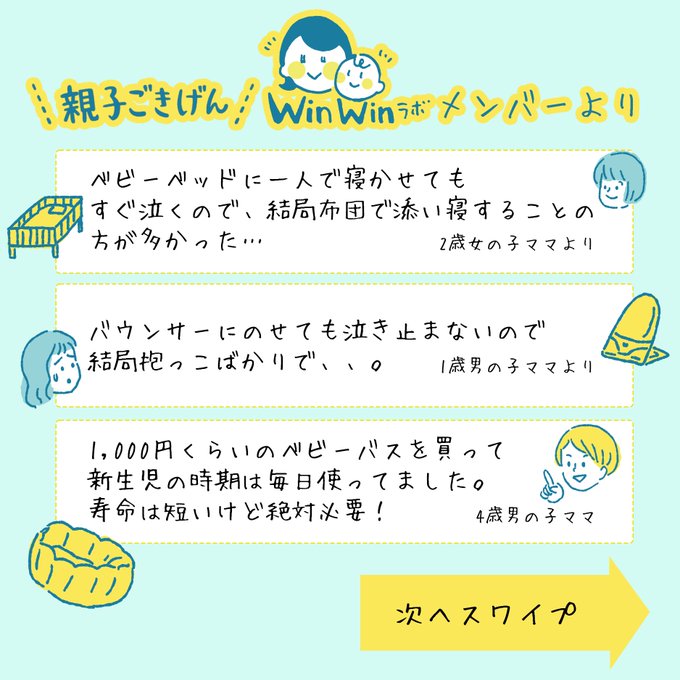 親子ごきげん WinWinラボメンバーより
ベビーベッドに一人で寝かせても
すぐ泣くので、結局布団で添い寝することの
方が多かった… 2歳女の子ママより
バウンサーにのせても泣き止まないので
結局抱っこばかりで、、。 1歳男の子ママより
1,000円くらいのベビーバスを買って
新生児の時期は毎日使ってました。
寿命は短いけど絶対必要！ 4歳男の子ママ
次へスワイプ